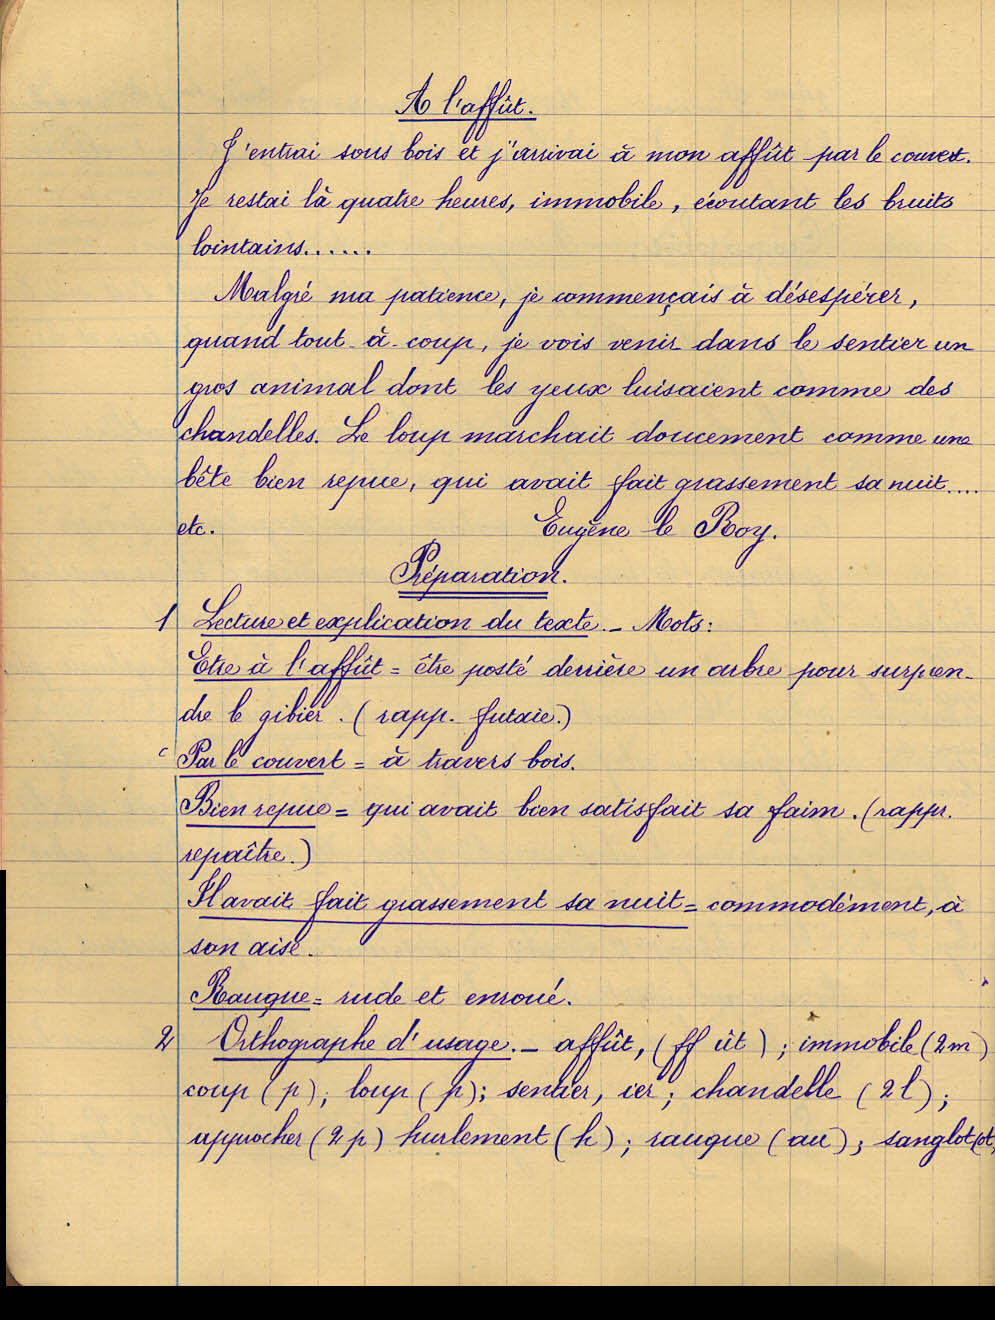 A l'affût.
J'entrai sous bois et j'arrivai à mon affût par le couvert.
Je restai là quatre heures, immobile, écoutant les bruits
lointains......
Malgré ma patience, je commençais à désespérer,
quand tout-à-coup, je vois venir dans le sentier un
gros animal dont les yeux luisaient comme des
chandelles. Le loup marchait doucement comme une
bête bien repue, qui avait fait grassement sa nuit....
etc. Eugène le Roy.
Préparation.
1 Lecture et explication du texte. - Mots:
Etre à l'affût = être posté derrière un arbre pour surpren-
dre le gibier. (rapp. futaie.)
c Par le couvert = à travers bois.
Bien repue = qui avait bien satisfait sa faim. (rappr.
repaître.)
Il avait fait grassement sa nuit = commodément, à
son aise.
Rauque = rude et enroué.
2 Orthographe d'usage. - affût, (ff ût) ; immobile (2m)
coup (p); loup (p); sentier, ier; chandelle (2l);
approcher (2p) hurlement (h); rauque (au); sanglot (ot,